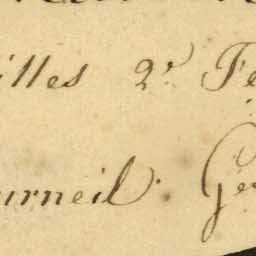 illes 2.e Fe
urneil. Gér